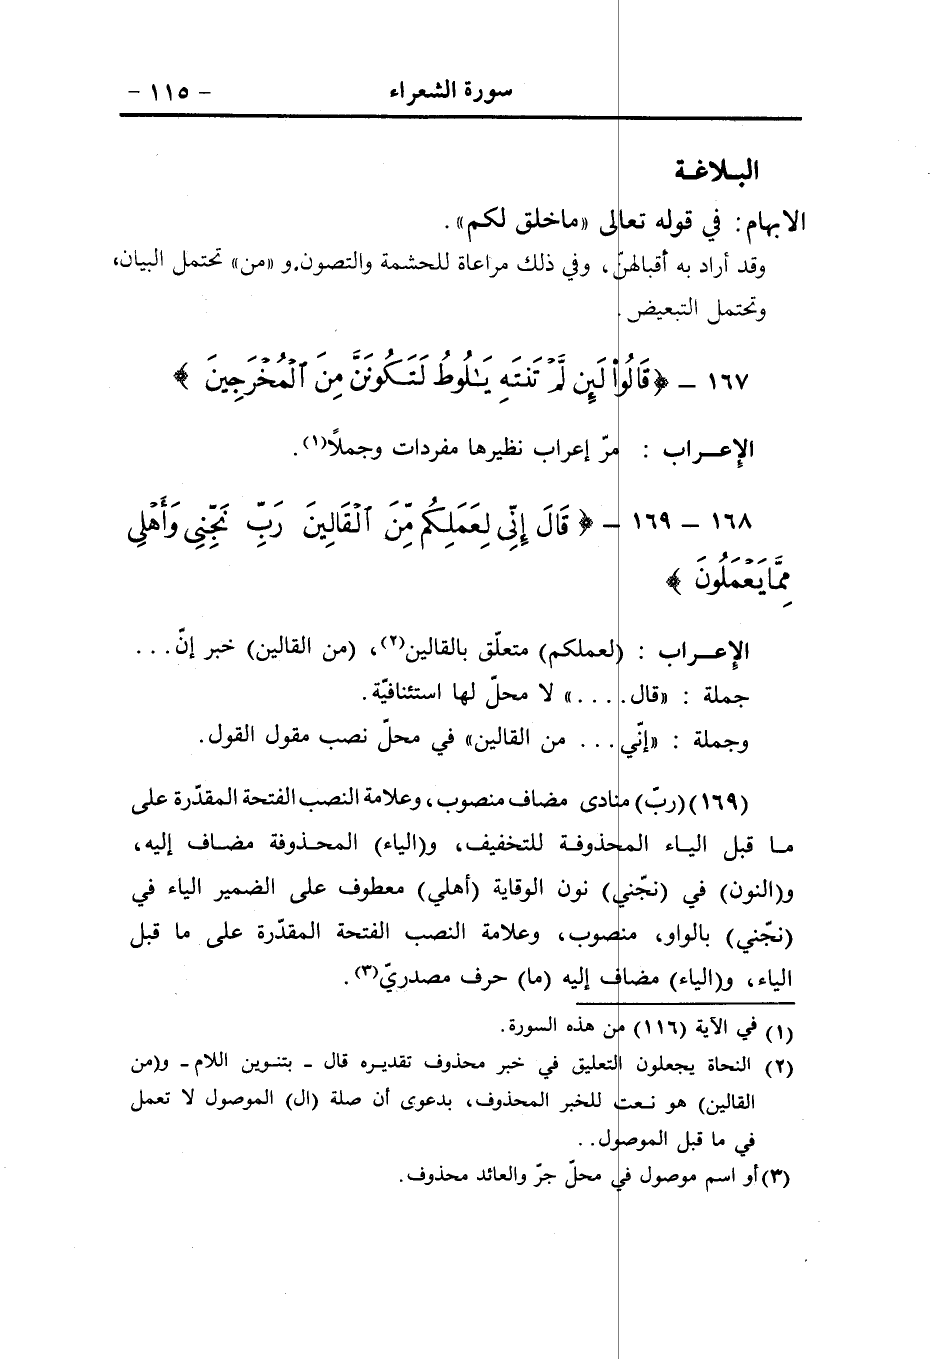 سورة الشعراء - ١١٥ -
البـلاغـة
الابهام: في قوله تعالى «ماخلق لكم».
وقد أراد به أقبالهنّ، وفي ذلك مراعاة للحشمة والتصون. و «من» تحتمل البيان،
وتحتمل التبعيض.
١٦٧ – ﴿قَالُوا۟ لَئِن لَّمْ تَنتَهِ يَـٰلُوطُ لَتَكُونَنَّ مِنَ ٱلْمُخْرَجِينَ﴾
الإعـــراب : مرّ إعراب نظيرها مفردات وجملاً(١).
١٦٨ – ١٦٩ – ﴿قَالَ إِنِّى لِعَمَلِكُم مِّنَ ٱلْقَالِينَ رَبِّ نَجِّنِى وَأَهْلِى
مِمَّا يَعْمَلُونَ﴾
الإعـــراب : (لعملكم) متعلّق بالقالين(٢)، (من القالين) خبر إنّ...
جملة : «قال....» لا محلّ لها استئنافيّة.
وجملة : «إنّي... من القالين» في محلّ نصب مقول القول.
(١٦٩) (ربّ) منادى مضاف منصوب، وعلامة النصب الفتحة المقدّرة على
ما قبل الياء المحذوفة للتخفيف، و(الياء) المحذوفة مضاف إليه،
و(النون) في (نجّني) نون الوقاية (أهلي) معطوف على الضمير الياء في
(نجّني) بالواو، منصوب، وعلامة النصب الفتحة المقدّرة على ما قبل
الياء، و(الياء) مضاف إليه (ما) حرف مصدريّ(٣).
(١) في الآية (١١٦) من هذه السورة.
(٢) النحاة يجعلون التعليق في خبر محذوف تقديره قال - بتنوين اللام - و(من
القالين) هو نعت للخبر المحذوف، بدعوى أن صلة (ال) الموصول لا تعمل
في ما قبل الموصول..
(٣) أو اسم موصول في محلّ جرّ والعائد محذوف.